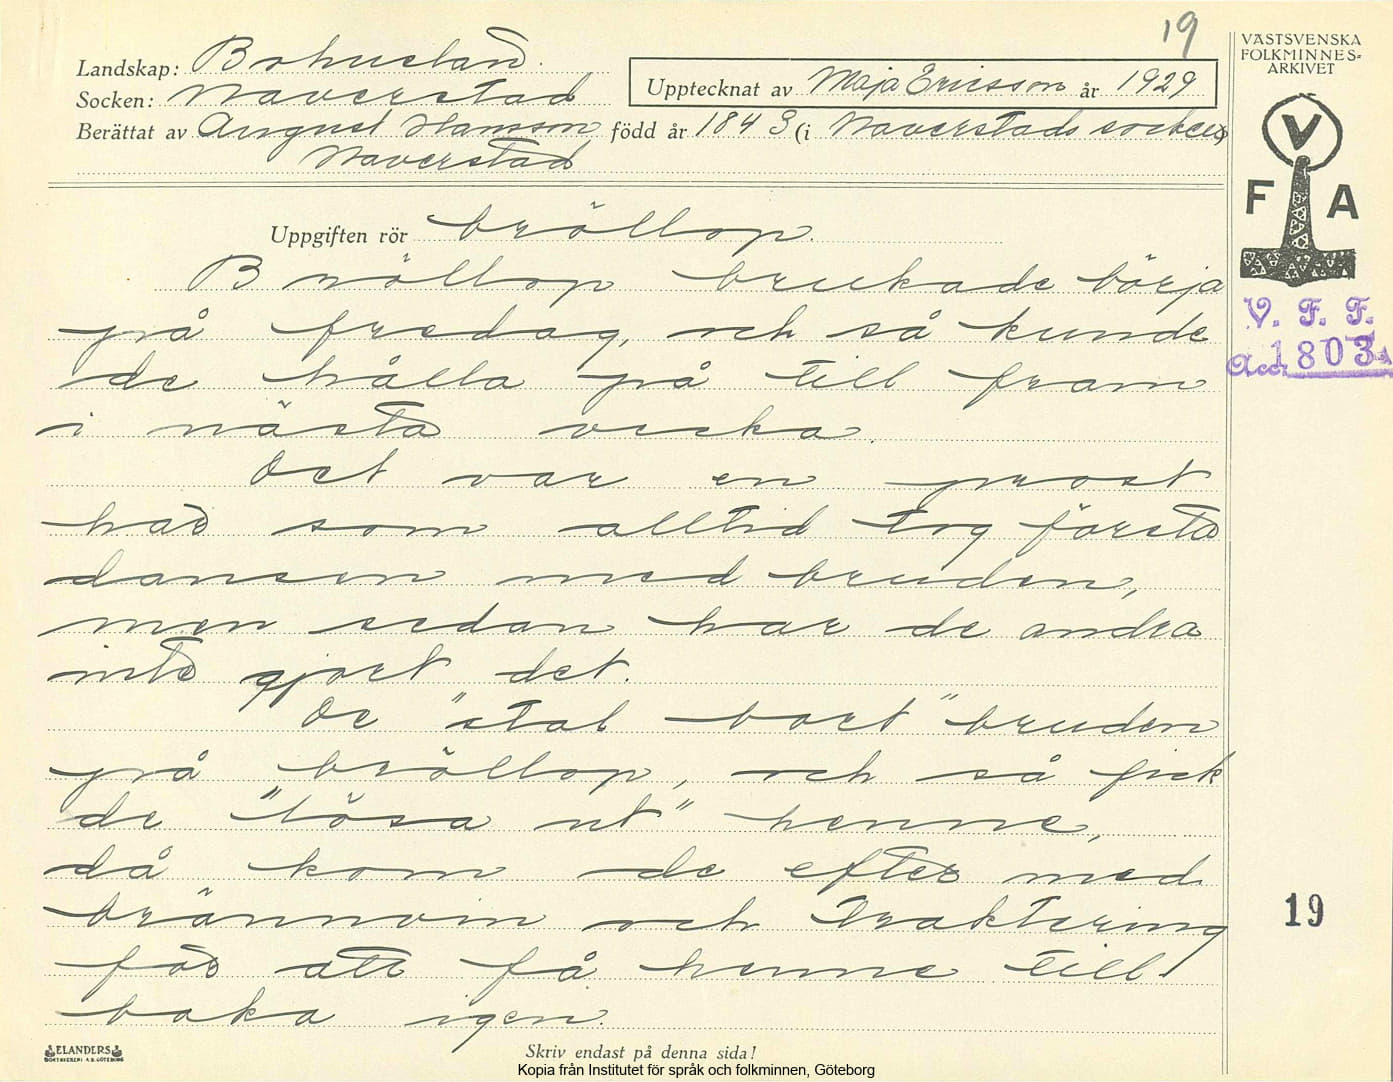 19
Landskap: Bohuslän.
Socken: Naverstad
Upptecknat av Maja Ericsson år 1929
Berättat av August Hanson född år 1843 (i Naverstads socken)
Naverstad
VÄSTSVENSKA
FOLKMINNES=
ARKIVET
V
F A
V. F. F.
Acc. 1803
Uppgiften rör bröllop.
Bröllop brukade börja
på fredag, och så kunde
de hålla på till fram
i nästa vecka.
Det var en prost
här som alltid tog första
dansen med bruden,
men sedan har de andra
inte gjort det.
De "stal bort" bruden
på bröllop, och så fick
de "lösa ut" henne,
då kom de efter med
brännvin och traktering
för att få henne till-
baka igen.
19
ELANDERS
BOKTRYCKERI A.B. GÖTEBORG
Skriv endast på denna sida!
Kopia från Institutet för språk och folkminnen, Göteborg